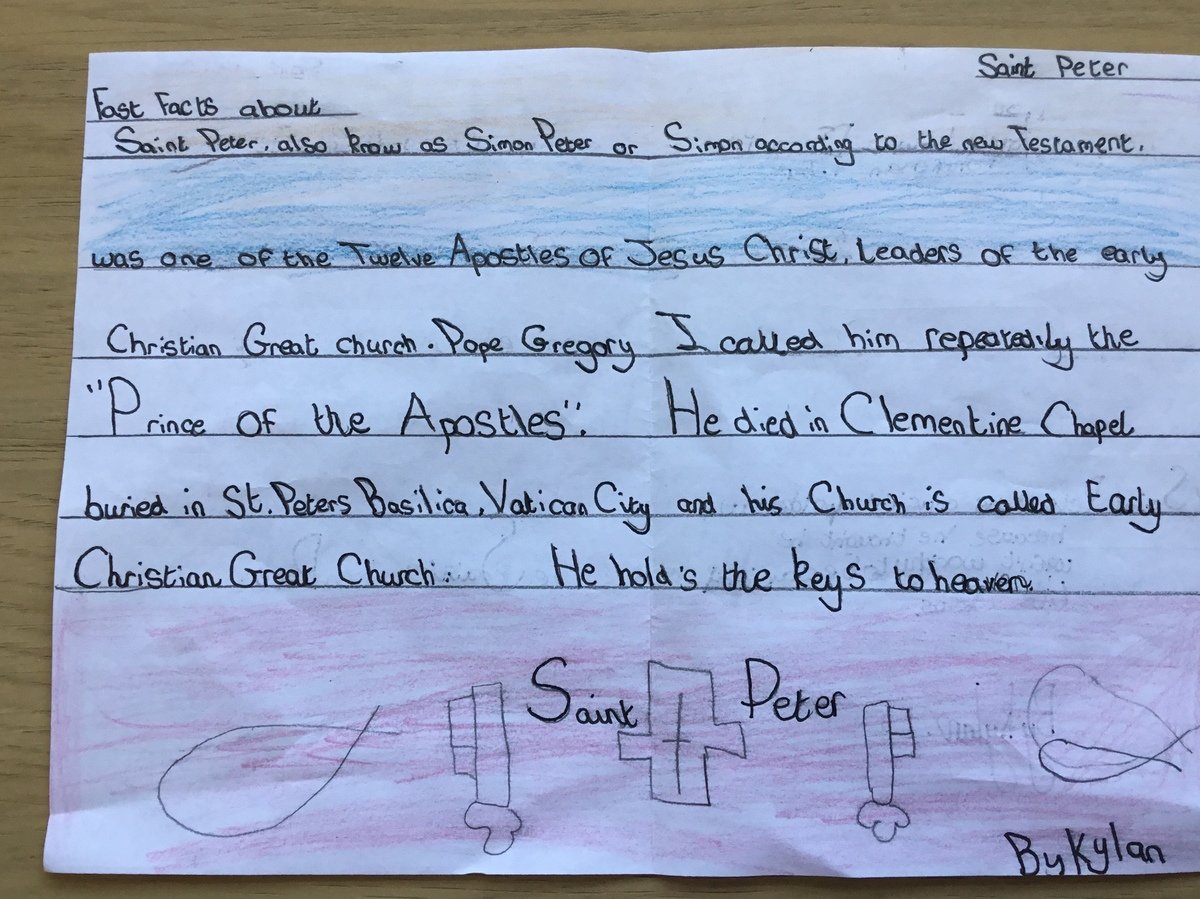 Saint Peter
Fast Facts about
Saint Peter, also know as Simon Peter or Simon according to the new Testament.
was one of the Twelve Apostles of Jesus Christ, Leaders of the early
Christian Great church. Pope Gregory I called him repeatedily the
"Prince of the Apostles". He died in Clementine Chapel
buried in St. Peters Basilica, Vatican City and his Church is called Early
Christian Great Church. He hold's the keys to heaven.
Saint Peter
By Kylan